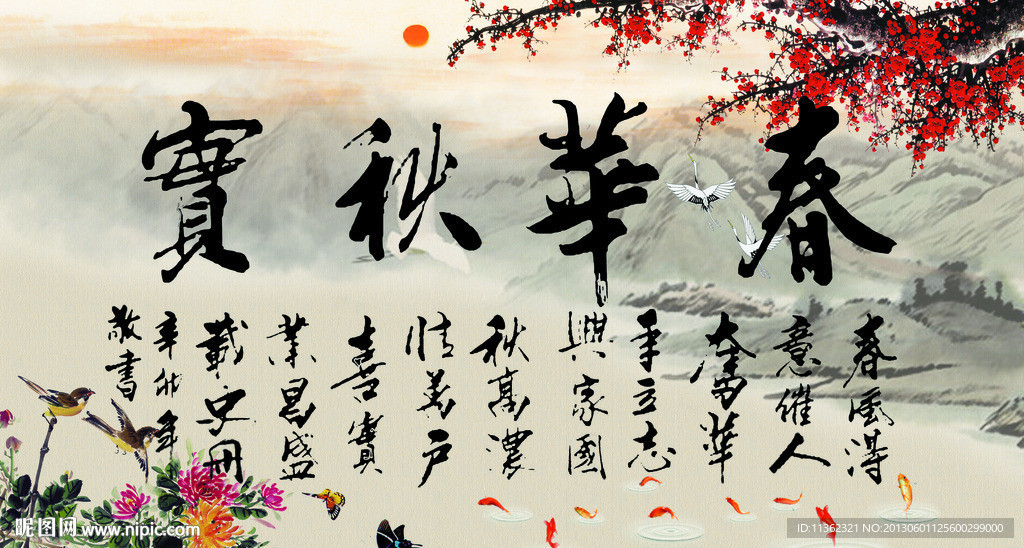 春華秋實
春風得
意催人
奮華
年立志
興家國
秋高濃
情萬戶
喜實
業昌盛
載史冊
辛卯年
敬書
昵图网 www.nipic.com
ID:11362321 NO:20130601125600299000